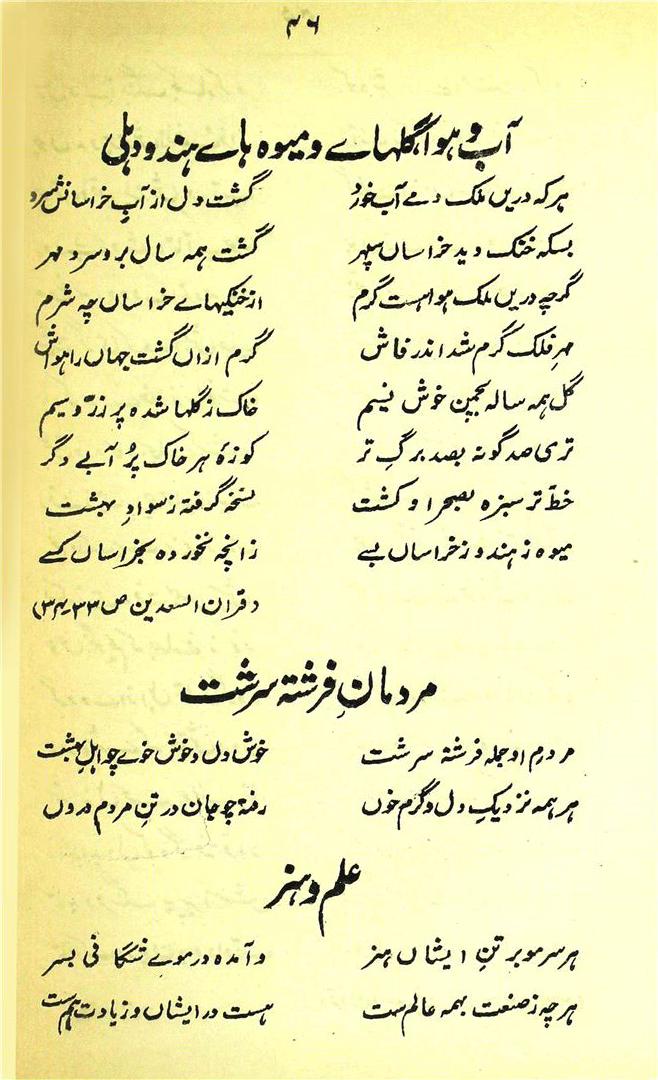 ۴۶
آب و ہوا، گلہاے و میوہ ہاے ہند و دہلی
ہر کہ دریں ملک دمے آب خورد گشت دل از آبِ خراسانش سرد
بسکہ خنک دید خراساں سپہر گشت ہمہ سال برو سرد مہر
گرچہ دریں ملک ہوا ہست گرم از خنکیہاے خراساں چہ شرم
مہرِ فلک گرم شد اندر قاش گرم ازاں گشت جہاں را ہواش
گل ہمہ سالہ بچمن خوش نسیم خاک ز گلہا شدہ پر زرّ و سیم
تری صد گونہ بصد برگِ تر کوزۂ ہر خاک پُر آبے دگر
خطّ تر سبزہ بصحرا و کشت نسخہ گرفتہ ز سوادِ بہشت
میوہ ز ہند و ز خراساں بسے زانچہ نخوردہ بخراساں کسے
(قران السعدین ص ۳۳-۳۴)
مردمانِ فرشتہ سرشت
مردمِ او جملہ فرشتہ سرشت خوش دل و خوش خوے چو اہلِ بہشت
ہر ہمہ نزدیکِ دل و گرم خوں رفتہ چو جان در تنِ مردم دروں
علم و ہنر
ہر سرِ مو بر تنِ ایشاں ہنر و آمدہ در موے شگافی بسر
ہرچہ ز صنعت بہمہ عالم ست ہست در ایشاں و زیادت ہم ست